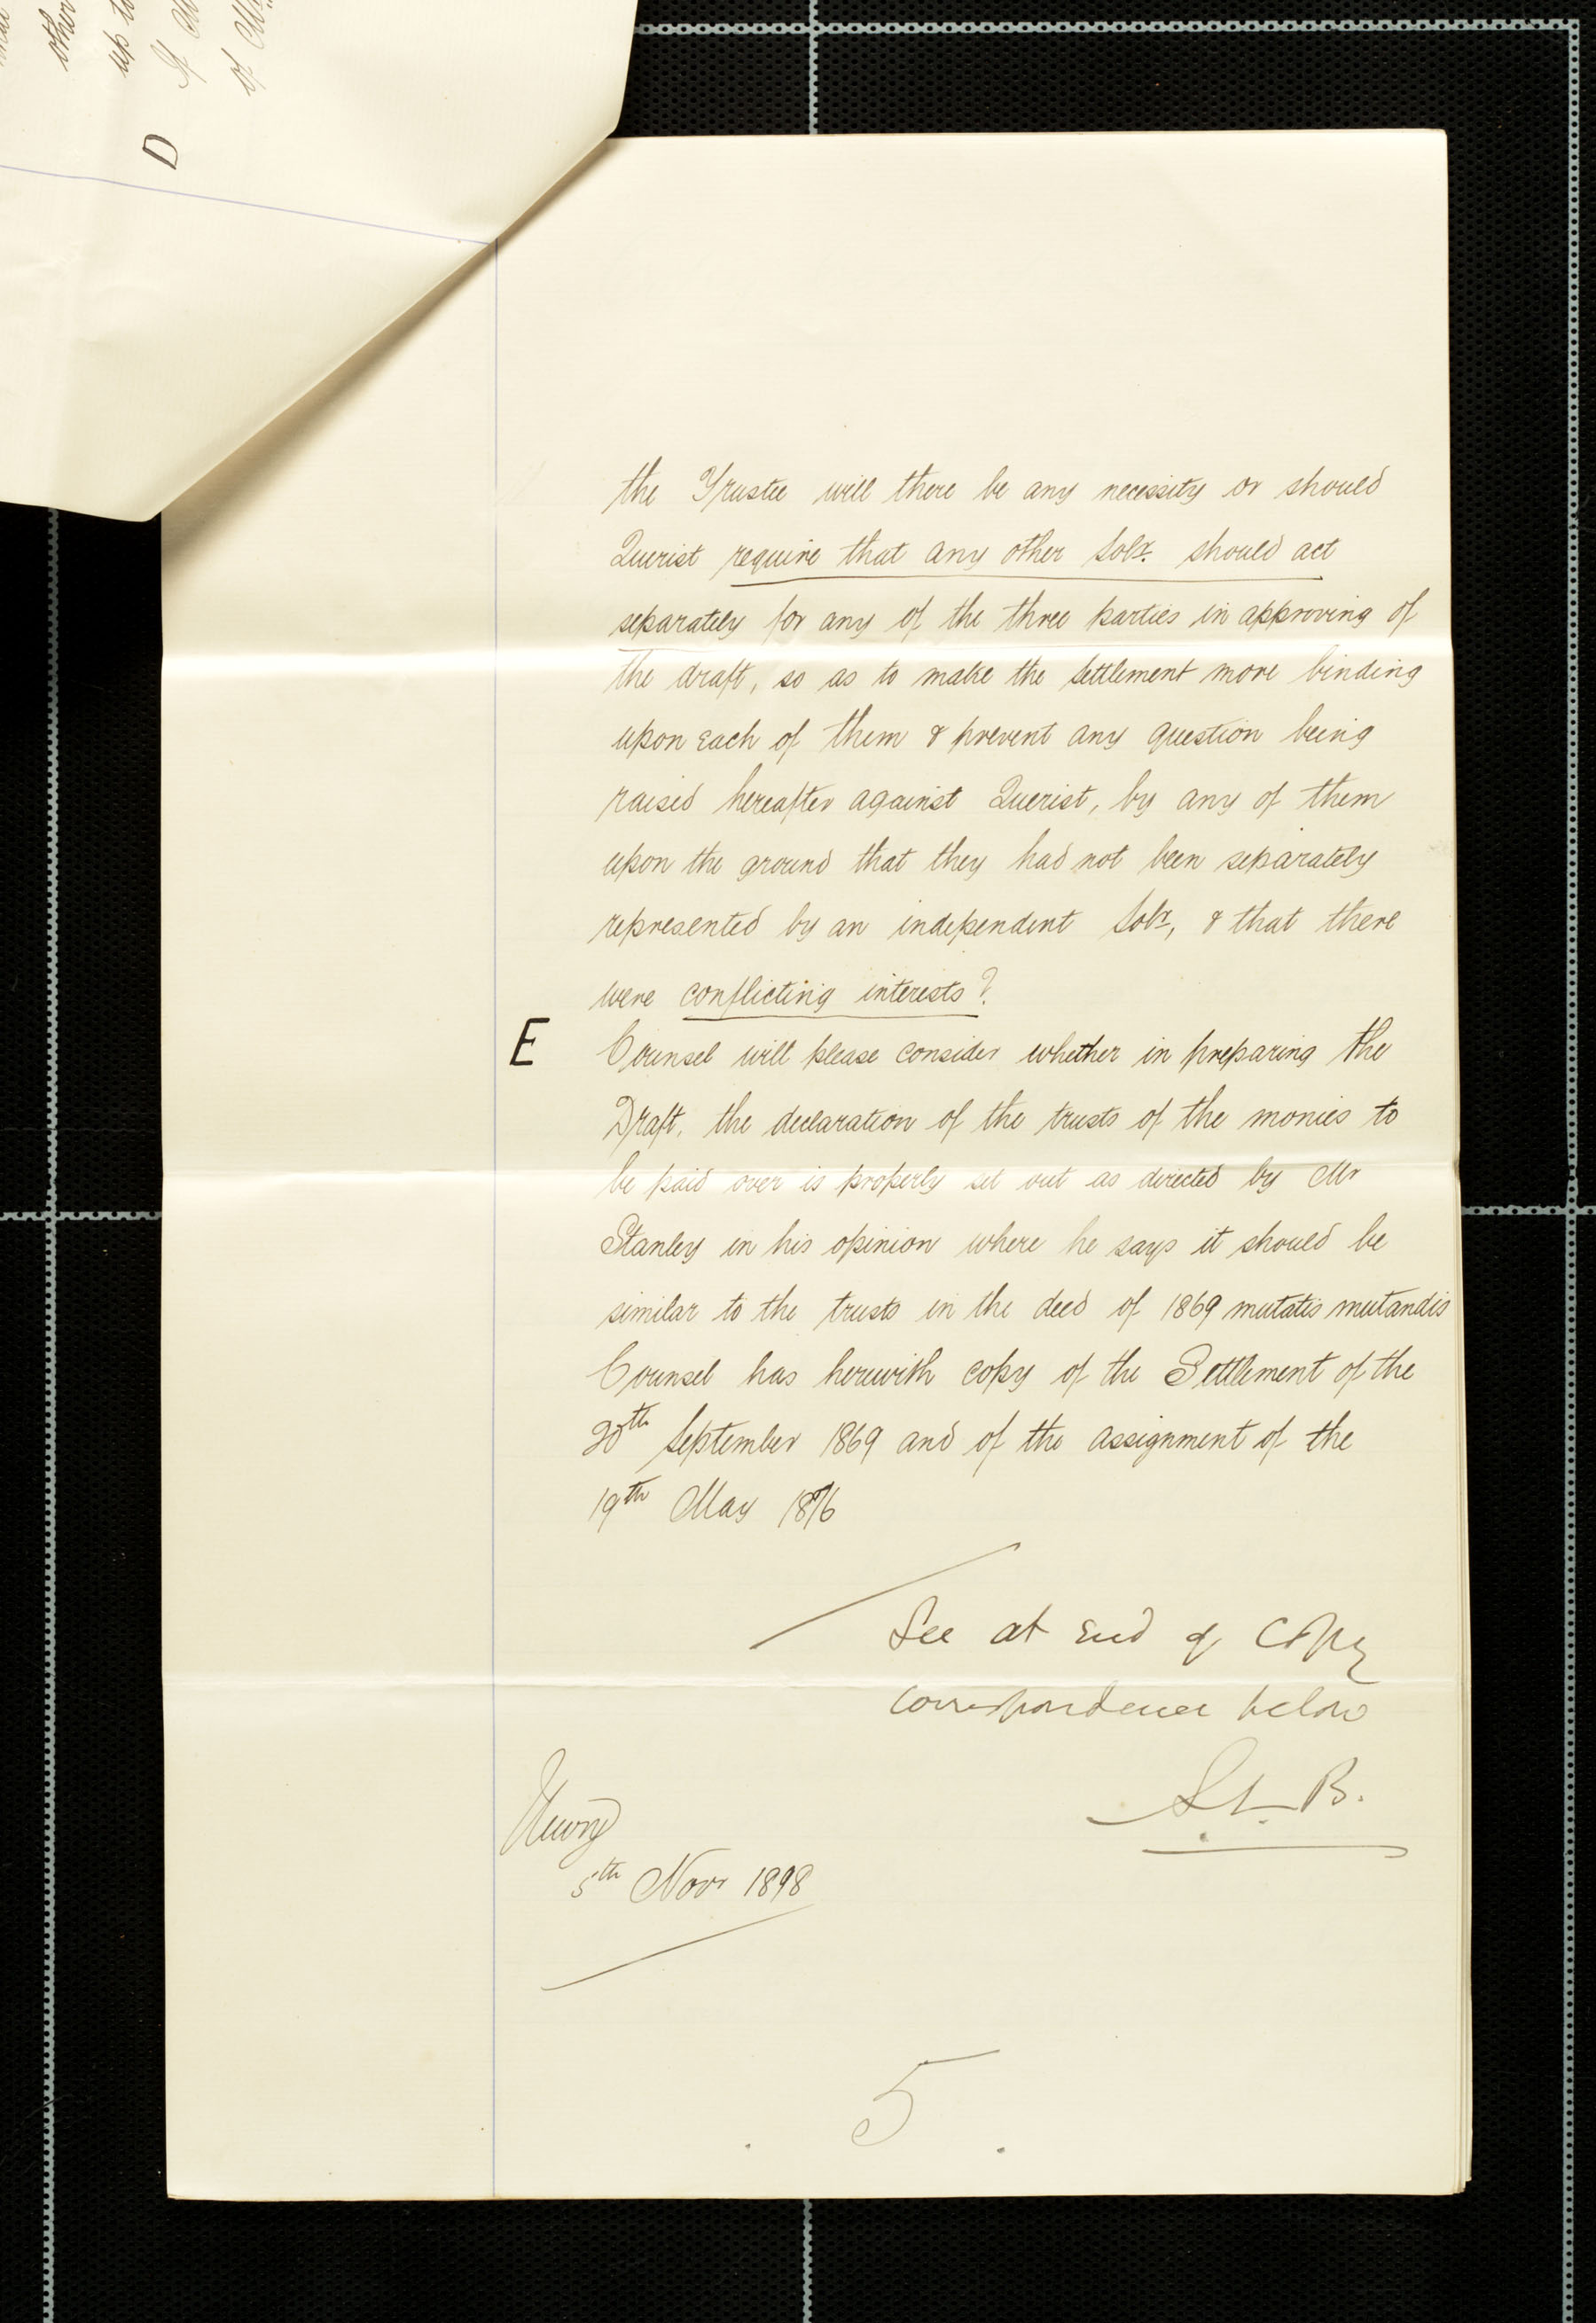 other
up to
If
of
D
the Trustee will there be any necessity or should
Querist require that any other Solr. should act
separately for any of the three parties in approving of
the draft, so as to make the settlement more binding
upon each of them & prevent any question being
raised hereafter against Querist, by any of them
upon the ground that they had not been separately
represented by an independent Solr, & that there
were conflicting interests?
E Counsel will please consider whether in preparing the
Draft, the declaration of the trusts of the monies to
be paid over is properly set out as directed by Mr
Stanley in his opinion where he says it should be
similar to the trusts in the deed of 1869 mutatis mutandis
Counsel has herewith copy of the Settlement of the
20th September 1869 and of the assignment of the
19th May 1876
See at End of Copy
correspondence below
B.
Newry
5th Novr 1898
5